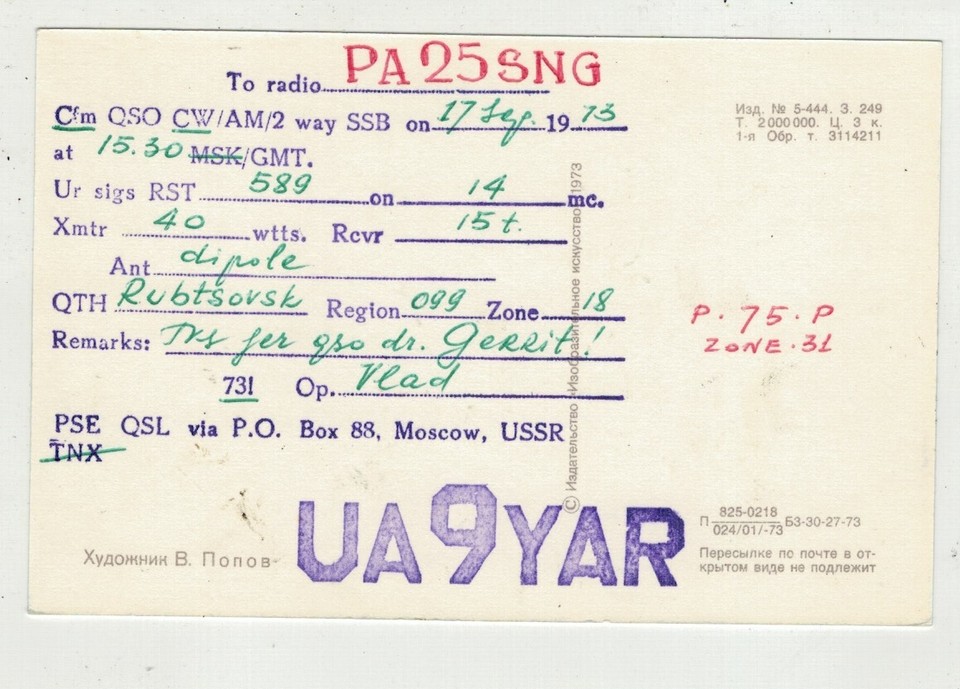 To radio PA25SNG
Cfm QSO CW/AM/2 way SSB on 17 Sep. 1973
at 15.30 MSK/GMT.
Ur sigs RST 589 on 14 mc.
Xmtr 40 wtts. Rcvr 15 t.
Ant. dipole
QTH Rubtsovsk Region 099 Zone 18
Remarks: Tks fer qso dr. Gerrit!
731 Op. Vlad
PSE QSL via P.O. Box 88, Moscow, USSR
TNX
UA9YAR
Художник В. Попов
© Издательство «Изобразительное искусство» 1973
Изд. № 5-444. З. 249
Т. 2 000 000. Ц. 3 к.
1-я Обр. т. 3114211
P.75.P
ZONE.31
П 825-0218
024/01/-73 БЗ-30-27-73
Пересылке по почте в от-
крытом виде не подлежит